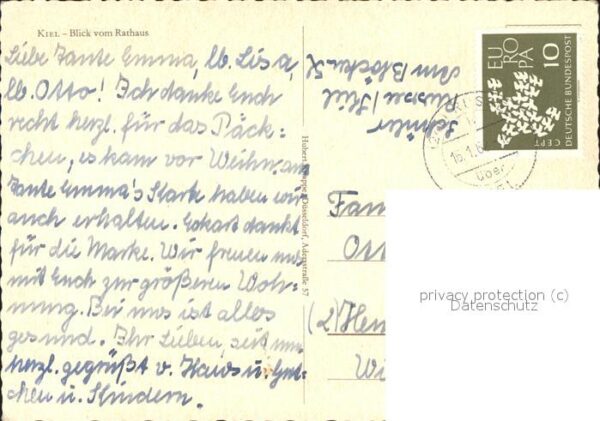 KIEL – Blick vom Rathaus
Liebe Tante Emma, lb. Lisa,
lb. Otto! Ich danke Euch
recht herzl. für das Päck-
chen, es kam vor Weihn. an
Tante Emma's Stark haben wir
auch erhalten. Eckart dankt
für die Marke. Wir freuen uns
mit Euch zur größeren Woh-
nung. Bei uns ist alles
gesund. Ihr Lieben, seit nun
herzl. gegrüßt v. Hans u. Gret-
chen u. Kindern.
Düsseldorf, Adersstraße 57
EUROPA
10
CEPT
DEUTSCHE BUNDESPOST
Fam
Ott
(2) Hem
Wi
privacy protection (c)
Datenschutz